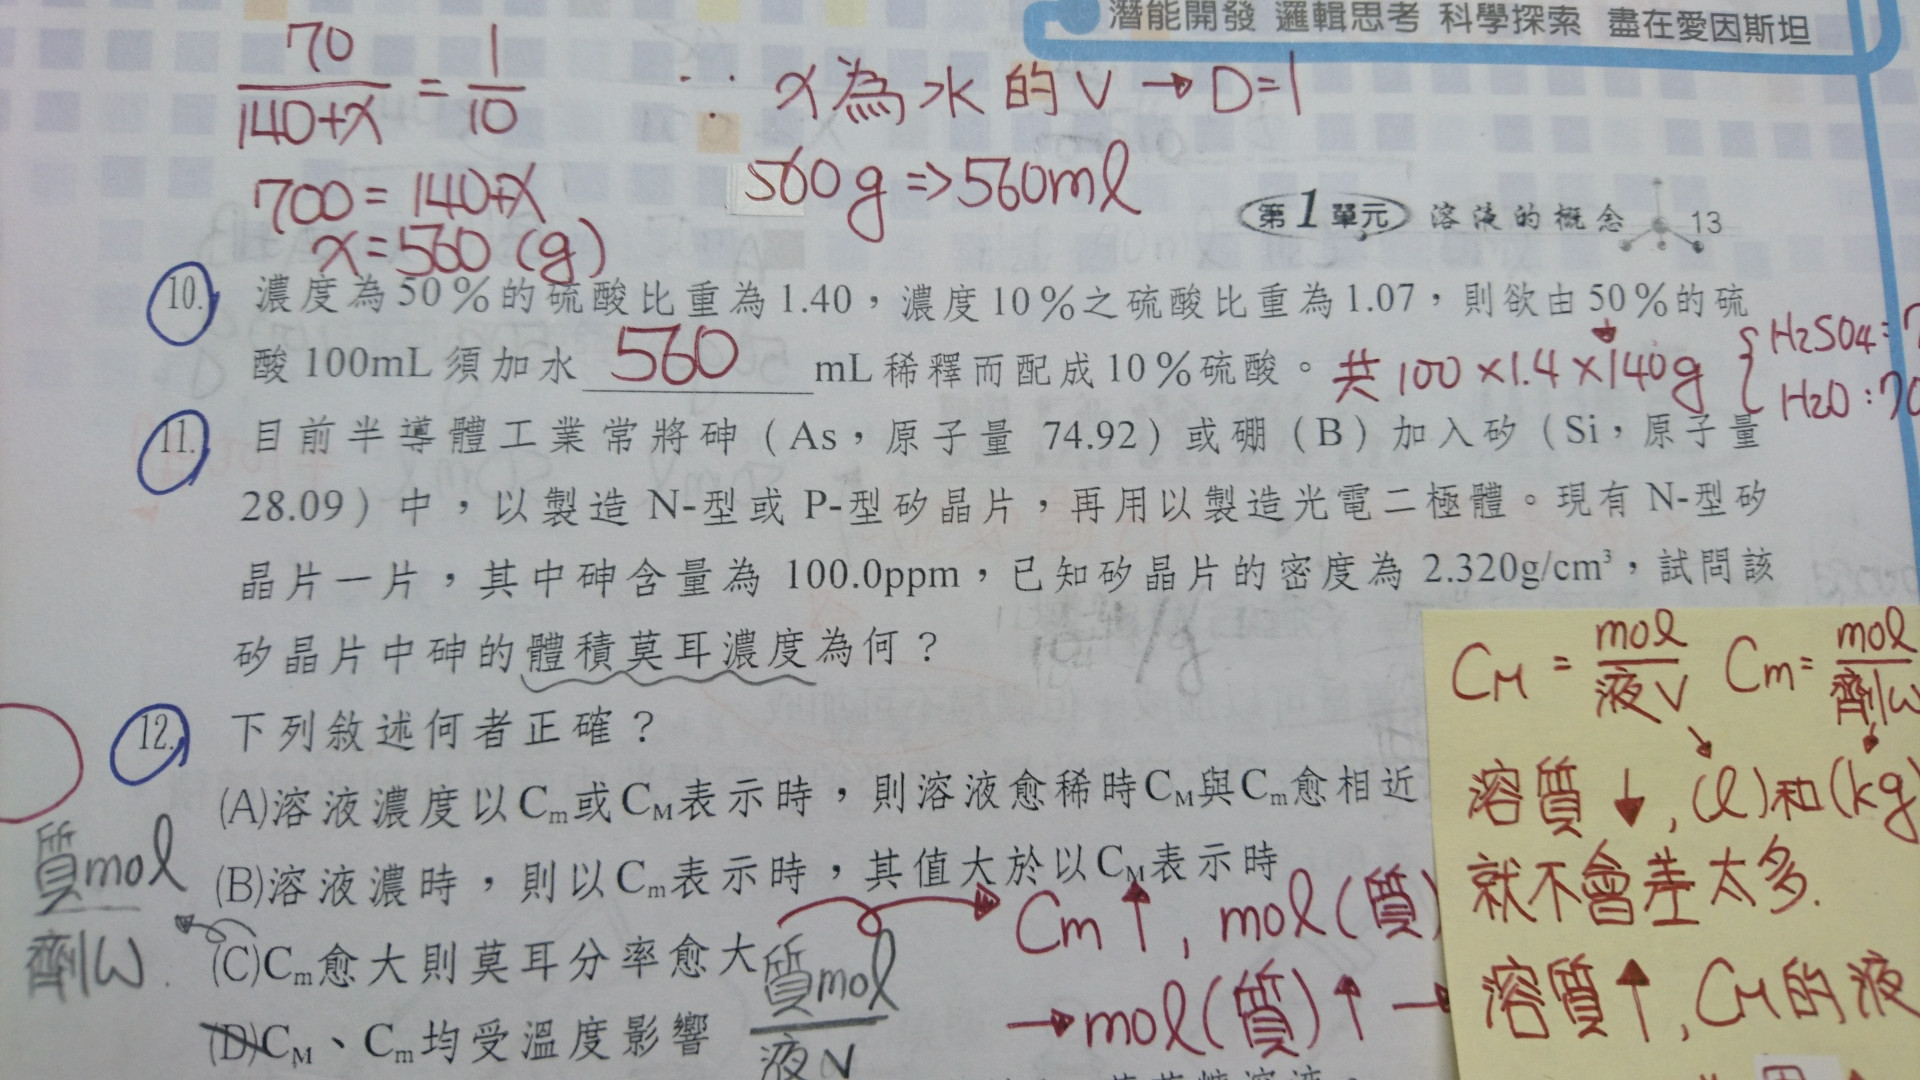 潛能開發 邏輯思考 科學探索 盡在愛因斯坦
70/(140+x) = 1/10
∵ x為水的V → D=1
700 = 140+x
560g => 560ml
x = 560 (g)
第1單元 溶液的概念 13
10. 濃度為50%的硫酸比重為1.40，濃度10%之硫酸比重為1.07，則欲由50%的硫
酸100mL須加水 560 mL稀釋而配成10%硫酸。
共100×1.4×140g { H2SO4:
H2O:70
11. 目前半導體工業常將砷（As，原子量 74.92）或硼（B）加入矽（Si，原子量
28.09）中，以製造 N-型或 P-型矽晶片，再用以製造光電二極體。現有 N-型矽
晶片一片，其中砷含量為 100.0ppm，已知矽晶片的密度為 2.320g/cm³，試問該
矽晶片中砷的體積莫耳濃度為何？
12. 下列敘述何者正確？
(A)溶液濃度以Cm或CM表示時，則溶液愈稀時CM與Cm愈相近
(B)溶液濃時，則以Cm表示時，其值大於以CM表示時
(C)Cm愈大則莫耳分率愈大
(D)CM、Cm均受溫度影響
質mol/劑W
質mol/液V
Cm↑, mol(質)
→mol(質)↑→
CM = mol/液V Cm = mol/劑W
溶質↓, (l)和(kg)
就不會差太多.
溶質↑, CM的液